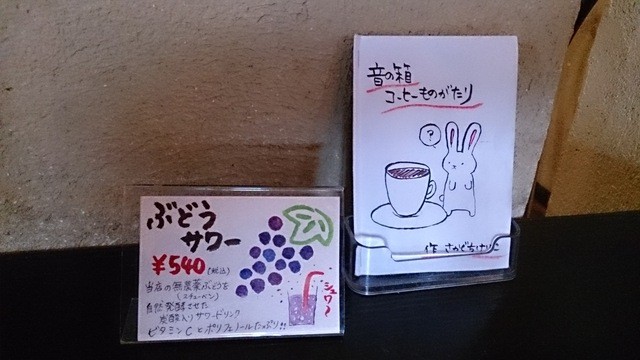 ぶどう
サワー
¥540(税込)
当店の無農薬ぶどうを
(スチューベン)
自然発酵させた
炭酸入りサワードリンク
ビタミンCとポリフェノールたっぷり!!
シュワ〜
音の箱
コーヒーものがたり
?
作